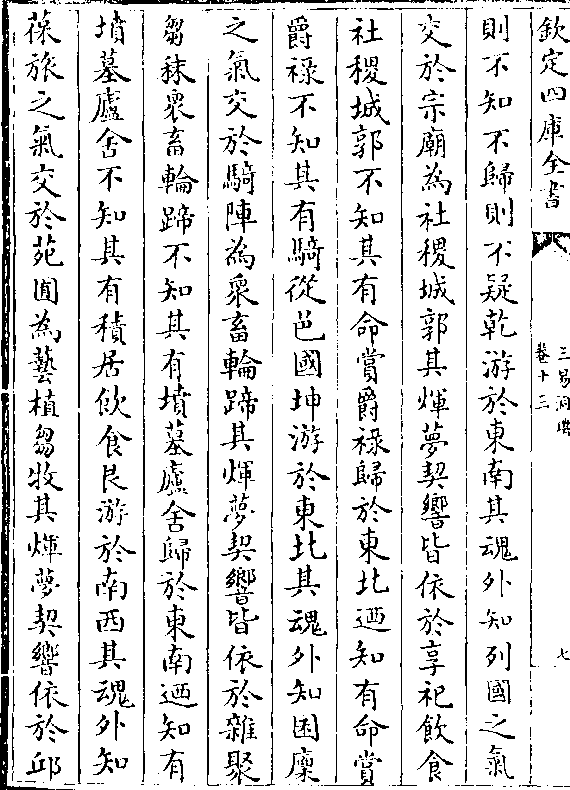 欽定四庫全書
三易洞璣
卷十三
七
則不知不歸則不疑乾游於東南其魂外知列國之氣
交於宗廟為社稷城郭其煇夢契響皆依於享祀飲食
社稷城郭不知其有命賞爵祿歸於東北迺知有命賞
爵祿不知其有騎從邑國坤游於東北其魂外知囷廩
之氣交於騎陣為衆畜輪蹄其煇夢契響皆依於雜聚
芻秣衆畜輪蹄不知其有墳墓廬舍歸於東南迺知有
墳墓廬舍不知其有積居飲食艮游於南西其魂外知
葆旅之氣交於苑囿為藝植芻牧其煇夢契響依於邱